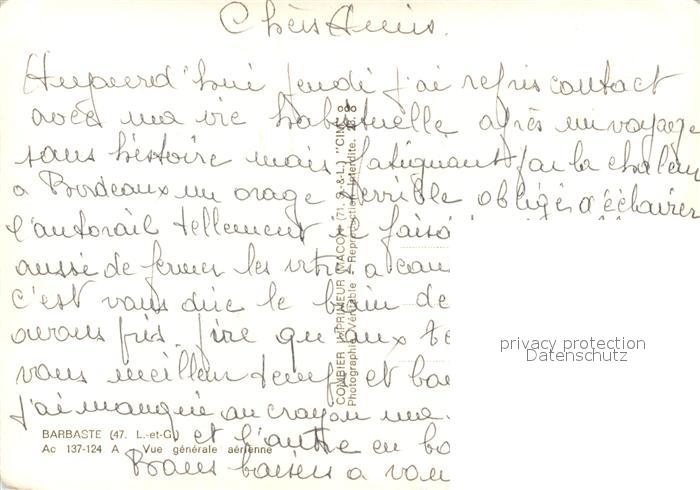 Chers Amis.
Aujourd'hui jeudi j'ai repris contact
avec ma vie habituelle après un voyage
sans histoire mais fatiguant par la chaleur
a Bordeaux un orage terrible obligés d'éclairer
l'autorail tellement il faisai
aussi de fermer les vitres a cau
c'est vous dire le bain de
avons pris. pire qu'aux
vous meilleur temps et bon
j'ai manqué au crayon
et l'autre en
Bons baisers a vou
COMBIER IMPRIMEUR MACON (71. S.-&-L.) "CIM"
Photographie Véritable - Reproduction Interdite.
BARBASTE (47. L.-et-G.)
Ac 137-124 A - Vue générale aérienne
privacy protection
Datenschutz